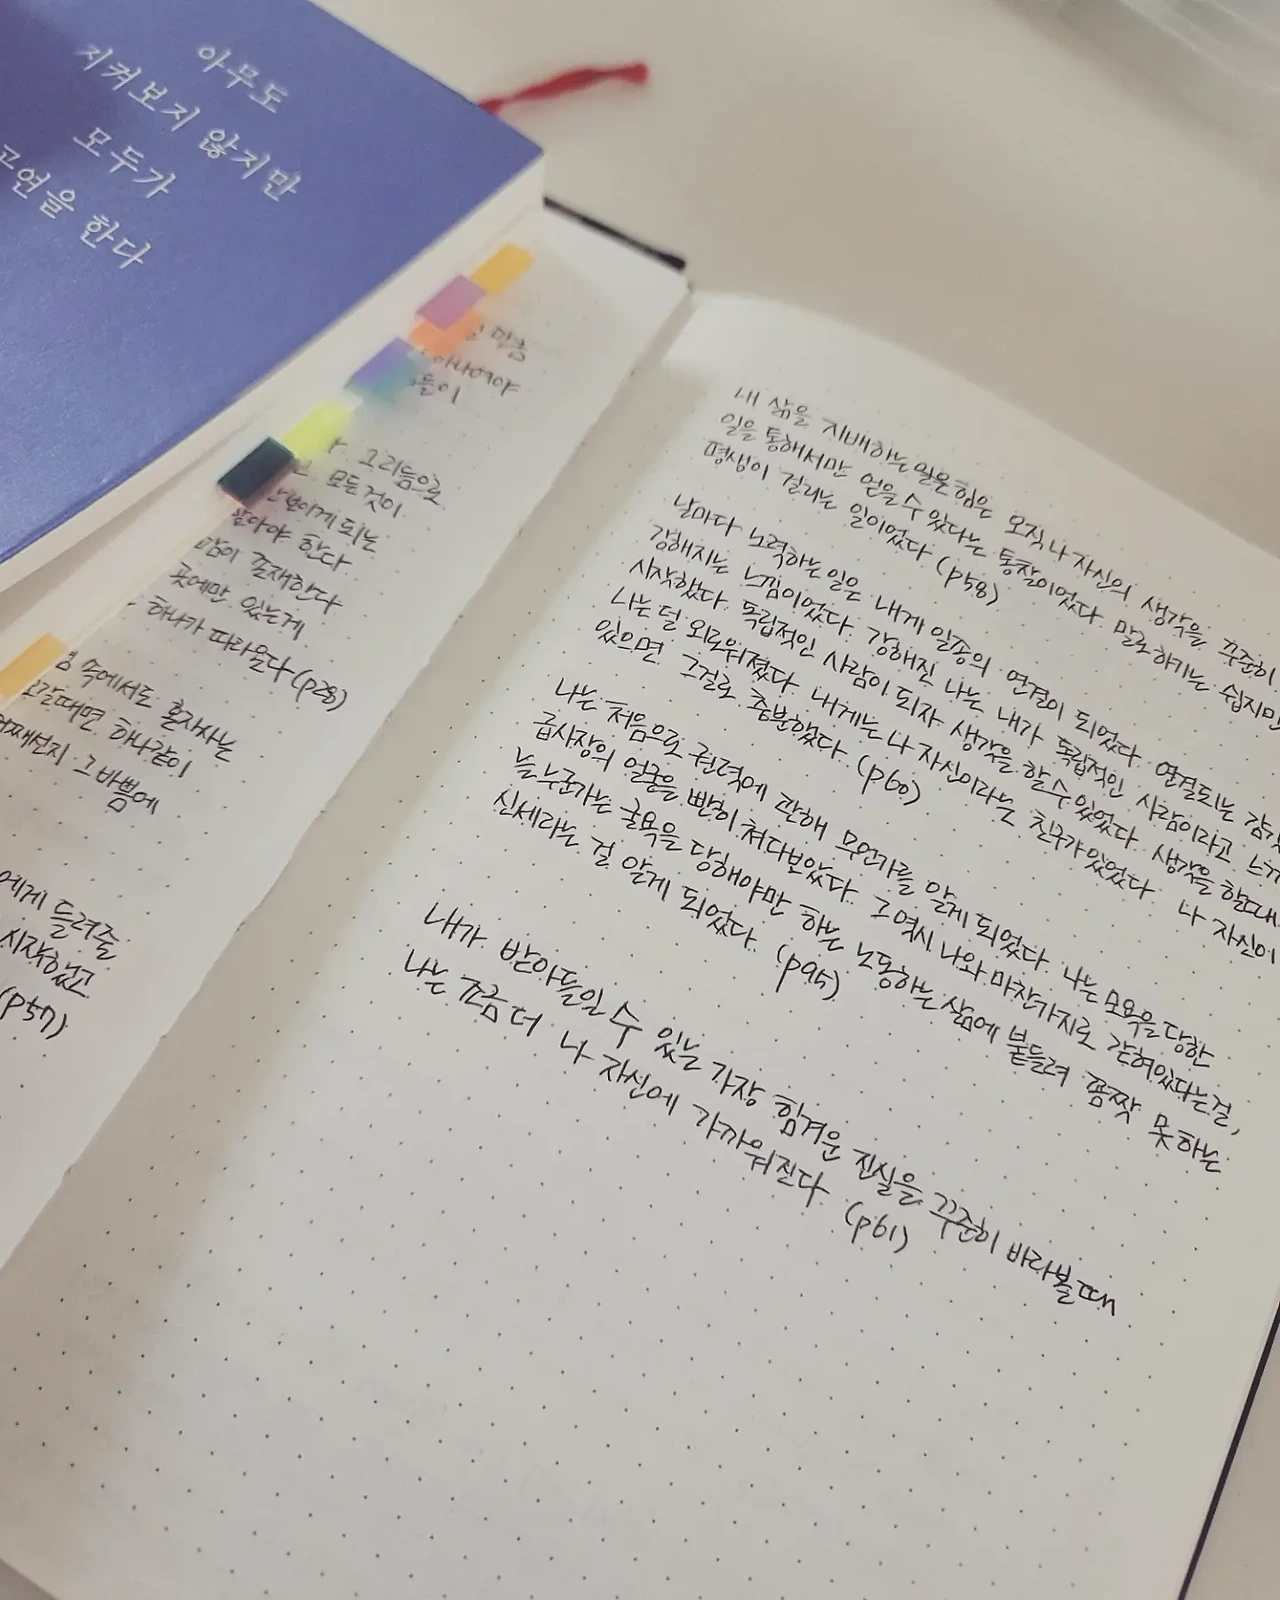 아무도
지켜보지 않지만
모두가
공연을 한다
만큼
그리듬으로
모든것이
보이게 되는
알아야 한다
존재한다
곳에만 있는게
하나가 따라온다 (p28)
속에서도 혼자사는
하나같이
어째선지 그 바쁨에
에게 들려줄
시작했고
(p57)
내 삶을 지배하는 일은 힘은 오직 나 자신의 생각을 꾸준히
일을 통해서만 얻을 수 있다는 통찰이었다. 말로하기는 쉽지만
평생이 걸리는 일이었다 (p58)
날마다 노력하는 일은 내게 일종의 연결이 되었다. 연결되는 감각은
강해지는 느낌이었다. 강해진 나는 내가 독립적인 사람이라고 느끼
시작했다. 독립적인 사람이 되자 생각을 할 수 있었다. 생각을 할때
나는 덜 외로워졌다. 내게는 나 자신이라는 친구가 있었다. 나 자신이
있으면 그걸로 충분했다. (p60)
나는 처음으로 권력에 관해 무언가를 알게 되었다. 나는 모욕을 당한
급사장의 얼굴을 빤히 쳐다보았다. 그 역시 나와 마찬가지로 갇혀있다는걸,
늘 누군가는 굴욕을 당해야만 하는 노동하는 삶에 붙들려 꼼짝 못하는
신세라는 걸 알게 되었다. (p95)
내가 받아들일 수 있는 가장 힘겨운 진실을 꾸준히 바라볼 때
나는 조금 더 나 자신에 가까워진다. (p61)